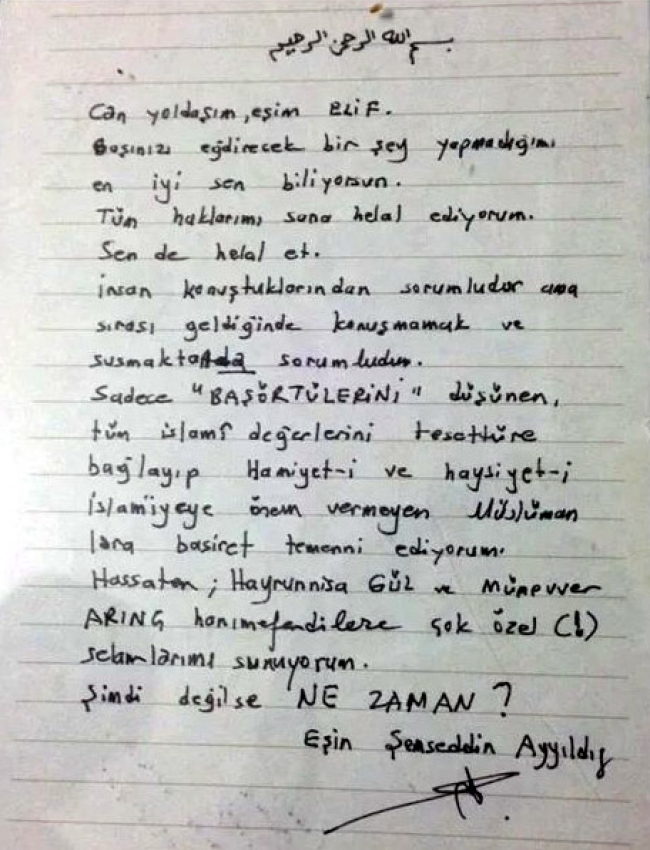 بسم الله الرحمن الرحيم
Can yoldaşım, eşim ELİF.
Başınızı eğdirecek bir şey yapmadığımı
en iyi sen biliyorsun.
Tüm haklarımı sana helal ediyorum.
Sen de helal et.
insan konuştuklarından sorumludur ama
sırası geldiğinde konuşmamak ve
susmaktanda sorumludur.
Sadece "BAŞÖRTÜLERİNİ" düşünen,
tüm islamî değerlerini tesettüre
bağlayıp Hamiyet-i ve haysiyet-i
İslamiyeye önem vermeyen Müslüman
lara basiret temenni ediyorum.
Hassaten; Hayrunnisa GÜL ve Münevver
ARINÇ hanımefendilere çok özel (!)
selamlarımı sunuyorum.
Şimdi değilse NE ZAMAN?
Eşin Şemseddin Ayyıldız